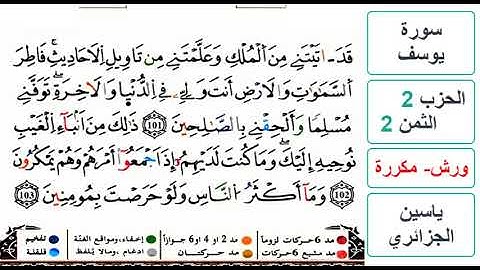 قَدَ اتَيْتَنِے مِنَ اَ۬لْمُلْكِ وَعَلَّمْتَنِے مِن تَاوِيلِ اِ۬لَاحَادِيثِۖ فَاطِرَ
اَ۬لسَّمَٰوَٰتِ وَالَارْضِ أَنتَ وَلِيِّۦ فِے اِ۬لدُّنْي۪ا وَالَاخِرَةِۖ تَوَفَّنِے
مُسْلِماٗ وَأَلْحِقْنِے بِالصَّٰلِحِينَۖ 101 ذَٰلِكَ مِنَ اَنۢبَآءِ اِ۬لْغَيْبِ
نُوحِيهِ إِلَيْكَۖ وَمَا كُنتَ لَدَيْهِمُۥٓ إِذَ اَجْمَعُوٓاْ أَمْرَهُمْ وَهُمْ يَمْكُرُونَۖ
102 وَمَآ أَكْثَرُ اُ۬لنَّاسِ وَلَوْ حَرَصْتَ بِمُومِنِينَۖ 103
مد 6 حركات لزوماً مد 2 أو 4 أو 6 جوازاً إخفاء، ومواقع الغنّة تفخيم
مد مشبع 6 حركات مد حركتان ادغام ، ومالا يُلفظ قلقلة
سورة
يوسف
الحزب 2
الثمن 2
ورش- مكررة
ياسين
الجزائري